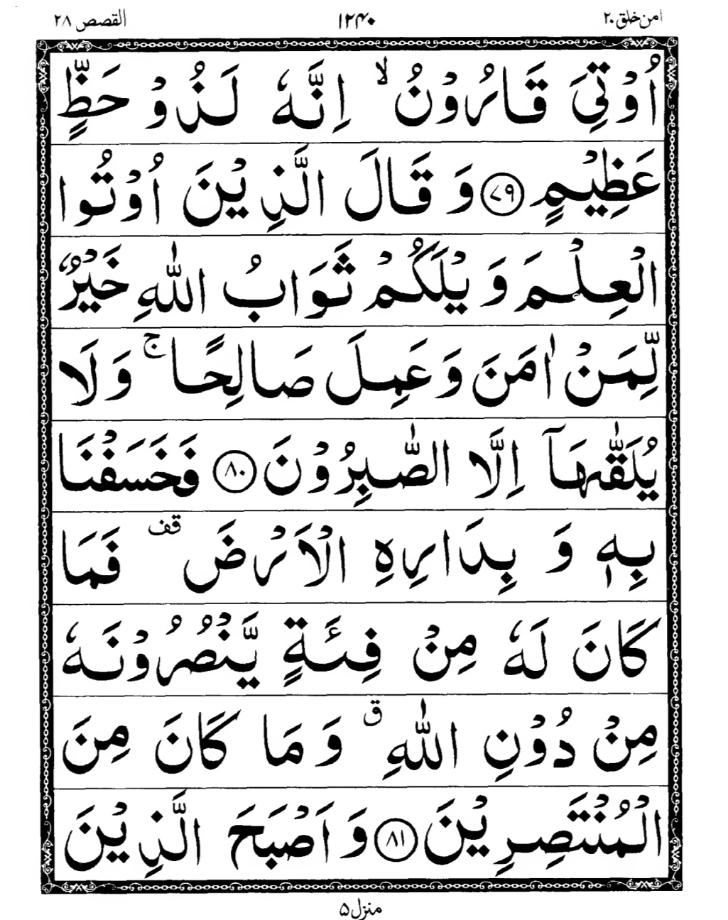 امن خلق ۲۰ ۱۲۴۰ القصص ۲۸
اُوْتِیَ قَارُوْنُ ۙ اِنَّهٗ لَذُوْ حَظٍّ
عَظِیْمٍ ﴿۷۹﴾ وَ قَالَ الَّذِیْنَ اُوْتُوا
الْعِلْمَ وَیْلَكُمْ ثَوَابُ اللّٰهِ خَیْرٌ
لِّمَنْ اٰمَنَ وَعَمِلَ صَالِحًا ۚ وَلَا
یُلَقّٰىهَاۤ اِلَّا الصّٰبِرُوْنَ ﴿۸۰﴾ فَخَسَفْنَا
بِهٖ وَ بِدَارِهِ الْاَرْضَ ۫ فَمَا
كَانَ لَهٗ مِنْ فِئَةٍ یَّنْصُرُوْنَهٗ
مِنْ دُوْنِ اللّٰهِ ۗ وَمَا كَانَ مِنَ
الْمُنْتَصِرِیْنَ ﴿۸۱﴾ وَاَصْبَحَ الَّذِیْنَ
منزل ۵